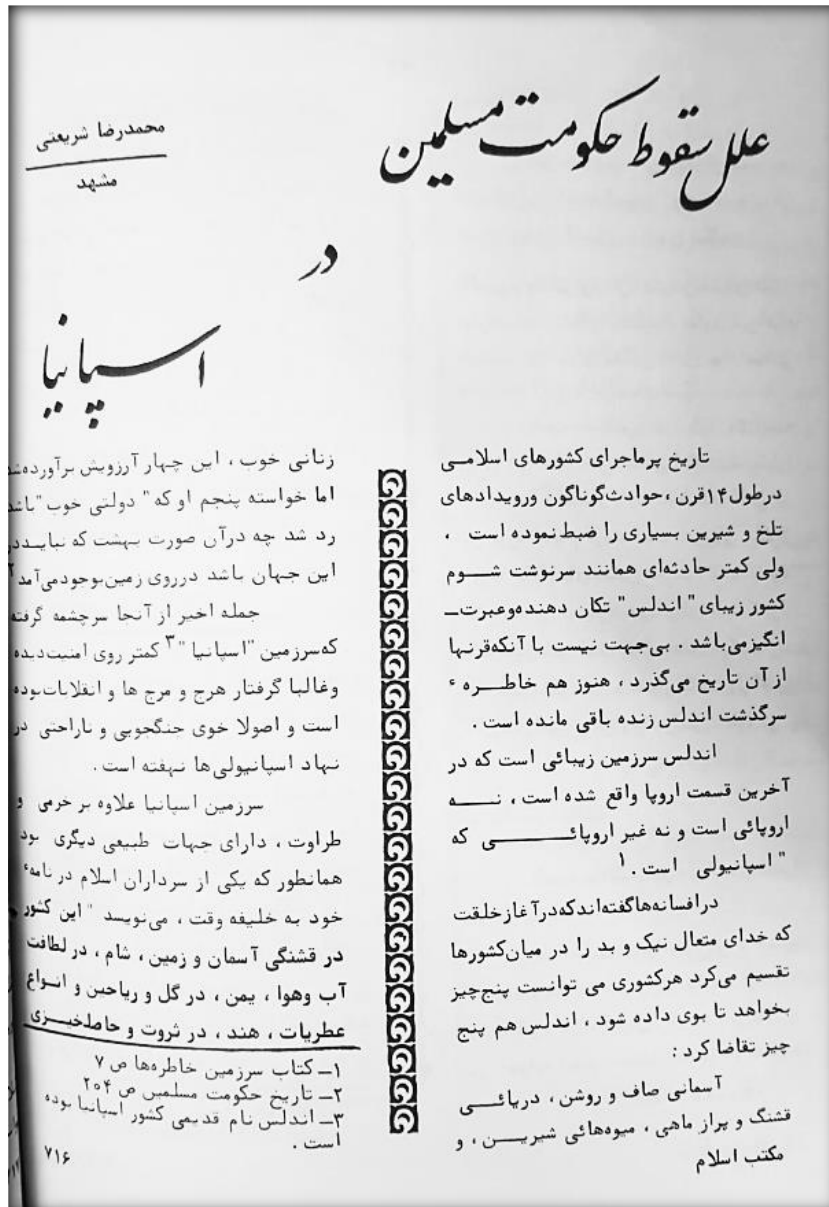 علل سقوط حکومت مسلمین
در
اسپانیا
محمدرضا شریعتی
مشهد
تاریخ پرماجرای کشورهای اسلامـی
درطول۱۴قرن ،حوادث‌گوناگون ورویدادهای
تلخ و شیرین بسیاری را ضبط نموده است ،
ولی کمتر حادثه‌ای همانند سرنوشت شـــوم
کشور زیبای " اندلس" تکان دهنده‌وعبرت‌ـ
انگیزمی‌باشد . بی‌جهت نیست با آنکه‌قرنها
از آن تاریخ می‌گذرد ، هنوز هم خاطــره ء
سرگذشت اندلس زنده باقی مانده است .
اندلس سرزمین زیبائی است که در
آخرین قسمت اروپا واقع شده است ، نـــه
اروپائی است و نه غیر اروپائـــــــی که
" اسپانیولی است .۱
درافسانه‌هاگفته‌اندکه‌درآغازخلقت
که خدای متعال نیک و بد را در میان‌کشورها
تقسیم می‌کرد هرکشوری می توانست پنج‌چیز
بخواهد تا بوی داده شود ، اندلس هم پنج
چیز تقاضا کرد :
آسمانی صاف و روشن ، دریائــی
قشنگ و پراز ماهی ، میوه‌هائی شیریــن ، و
مکتب اسلام
زنانی خوب ، این چهار آرزویش برآورده‌شد
اما خواسته پنجم او که " دولتی خوب "باشد
رد شد چه درآن صورت بهشت که نبایـددر
این جهان باشد درروی زمین‌بوجودمی‌آمد۲
جمله اخیر از آنجا سرچشمه گرفته
که‌سرزمین "اسپانیا "۳ کمتر روی امنیت‌دیده
وغالبا گرفتار هرج و مرج ها و انقلابات‌بوده
است و اصولا خوی جنگجویی و ناراحتی در
نهاد اسپانیولی‌ها نهفته است .
سرزمین اسپانیا علاوه بر خرمی و
طراوت ، دارای جهات طبیعی دیگری بود
همانطور که یکی از سرداران اسلام در نامهء
خود به خلیفه وقت ، می‌نویسد " این کشور
در قشنگی آسمان و زمین ، شام ، در لطافت
آب وهوا ، یمن ، در گل و ریاحین و انــواع
عطریات ، هند ، در ثروت و حاصلخیــزی
۱ــ کتاب سرزمین خاطره‌ها ص ۷
۲ــ تاریخ حکومت مسلمین ص ۲۰۴
۳ــ اندلس نام قدیمی کشور اسپانیا بوده
است .
۷۱۶